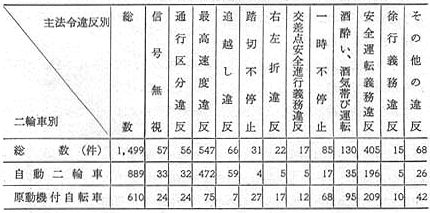 主法令違反別 二輪車別 総数 信号無視 通行区分違反 最高速度違反 追越し違反 踏切不停止 右左折違反 交差点安全進行義務違反 一時不停止 酒酔い、酒気帯び運転 安全運転義務違反 徐行義務違反 その他の違反
総数(件) 1,499 57 56 547 66 31 22 17 85 130 405 15 68
自動二輪車 889 33 32 472 59 4 5 5 17 35 196 5 26
原動機付自転車 610 24 24 75 7 27 17 12 68 95 209 10 42